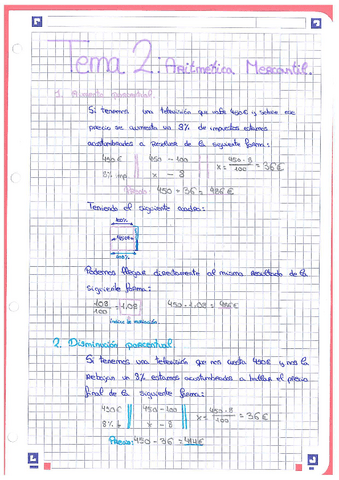 Tema 2: Aritmética Mercantil.
1. Aumento porcentual
Si tenemos una televisión que vale 450€ y sobre ese
precio se aumenta un 8% de impuestos estamos
acostumbrados a resolver de la siguiente forma:
450€ 450 – 100 x = 450·8/100 = 36€
8% imp. x – 8
450 + 36 = 486€
Teniendo el siguiente cuadro:
100%
450€
108%
Podemos llegar directamente al mismo resultado de la
siguiente forma:
108/100 = 1.08 450 · 1.08 = 486€
índice de variación.
2. Disminución porcentual
Si tenemos una televisión que nos cuesta 450€ y nos la
rebajan un 8% estamos acostumbrados a hallar el precio
final de la siguiente forma:
450€ 450 – 100 x = 450·8/100 = 36€
8% x – 8
Precio: 450 - 36 = 414€